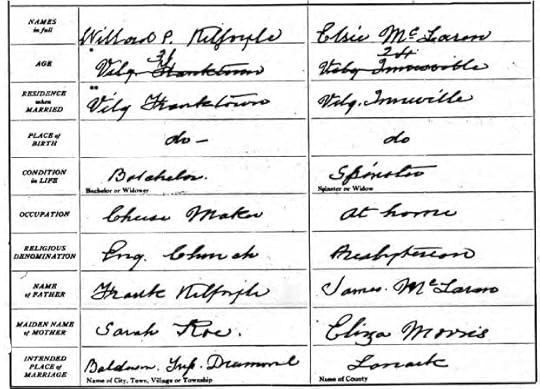 NAMES in full Willard P. Kilfoyle Elsie McLaren
AGE * 31 Vilg Franktown 24 Vilg Inneville
RESIDENCE when MARRIED ** Vilg Franktown Vilg. Inneville
PLACE of BIRTH do – do
CONDITION in LIFE Batchelor. Spinster
Bachelor or Widower Spinster or Widow
OCCUPATION Cheese Maker at home
RELIGIOUS DENOMINATION Eng. Church Presbyterian
NAME of FATHER Frank Kilfoyle James. McLaren
MAIDEN NAME of MOTHER Sarah Roe. Eliza Morris
INTENDED PLACE of MARRIAGE Balderson. Twp. Drummond Lanark
Name of City, Town, Village or Township Name of County